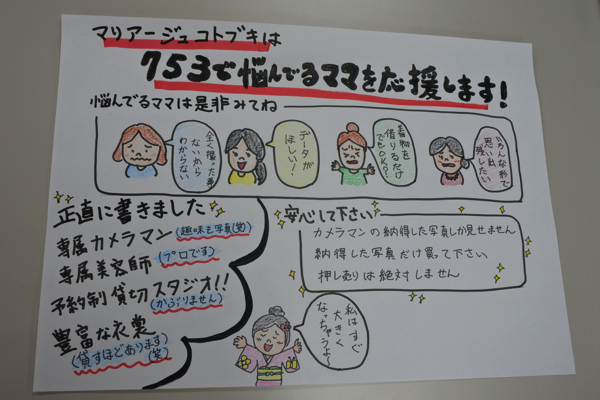 マリアージュコトブキは
753で悩んでるママを応援します!
悩んでるママは是非みてね
全く撮った事
ないから
わからない
データが
ほしい!
着物を
借りるだけ
でもOK??
いろんな形で
思い出
残したい
正直に書きました
専属カメラマン(趣味も写真(笑))
専属美容師(プロです)
予約制貸切スタジオ!!
(かぶりません)
豊富な衣裳
(貸すほどあります(笑))
安心して下さい
カメラマンの納得した写真しか見せません
納得した写真だけ買って下さい
押し売りは絶対しません
私はすぐ
大きく
なっちゃうよ〜